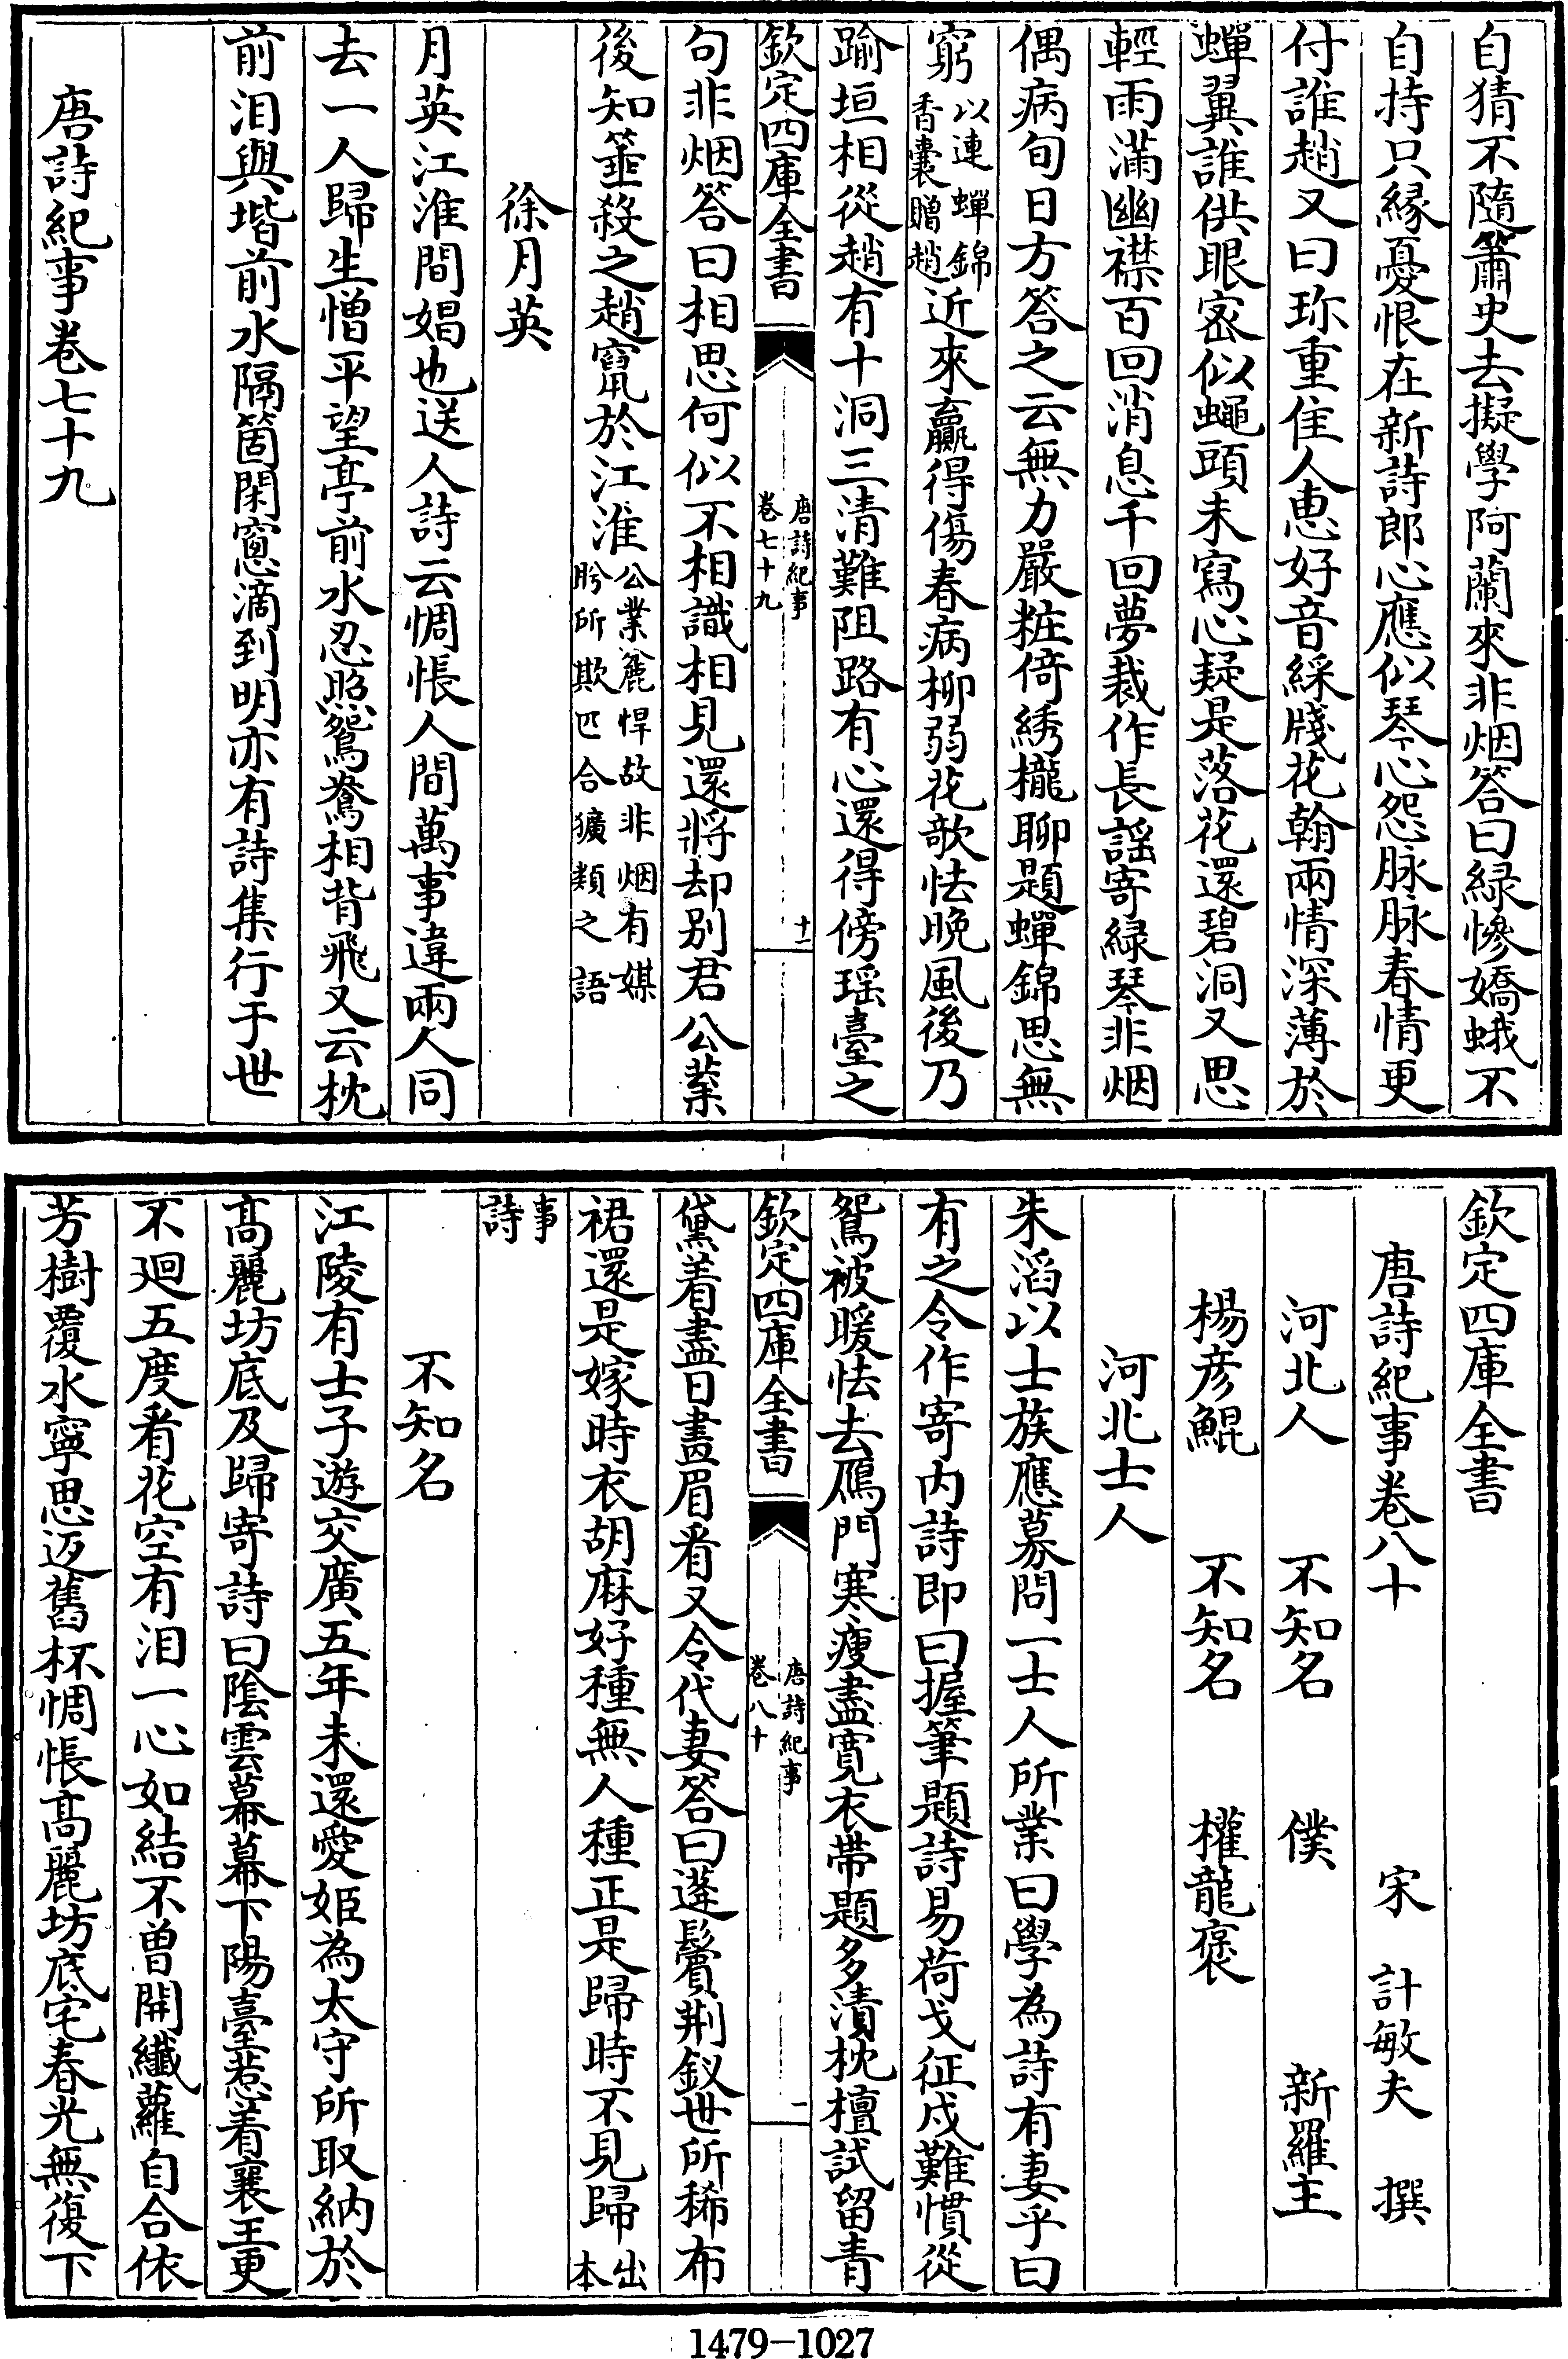 自猜不隨簫史去擬學阿蘭來非烟答曰緑慘嬌蛾不
自持只縁憂恨在新詩郎心應似琴心怨脉脉春情更
付誰趙又曰珍重隹人惠好音綵牋花翰兩情深薄於
蟬翼誰供眼密似蠅頭未寫心疑是落花還碧洞又思
輕雨滿幽襟百回消息千回夢裁作長謡寄緑琴非烟
偶病旬日方答之云無力嚴粧倚綉櫳聊題蟬錦思無
窮以連蟬錦香囊贈趙近來羸得傷春病柳弱花欹怯晚風後乃
踰垣相從趙有十洞三清難阻路有心還得傍瑶臺之
欽定四庫全書
唐詩紀事
卷七十九
十一
句非烟答曰相思何似不相識相見還將却别君公業
後知箠殺之趙竄於江淮公業麄悍故非烟有媒肹所欺匹合獷類之語
徐月英
月英江淮間娼也送人詩云惆悵人間萬事違兩人同
去一人歸生憎平望亭前水忍照鴛鴦相背飛又云枕
前泪與堦前水隔箇閑窻滴到明亦有詩集行于世
唐詩紀事卷七十九
欽定四庫全書
唐詩紀事卷八十
宋 計敏夫 撰
河北人 不知名 僕 新羅王
楊彦鯤 不知名 權龍褒
河北士人
朱滔以士族應募問一士人所業曰學為詩有妻乎曰
有之令作寄内詩即曰握筆題詩易荷戈征戍難慣從
鴛被暖怯去鴈門寒瘦盡寛衣帶題多漬枕檀試留青
欽定四庫全書
唐詩紀事
卷八十
一
黛着盡日畫眉看又令代妻答曰蓬鬢荆釵世所稀布
裙還是嫁時衣胡麻好種無人種正是歸時不見歸出本
事詩
不知名
江陵有士子遊交廣五年未還愛姬為太守所取納於
髙麗坊底及歸寄詩曰隂雲幕幕下陽臺惹着襄王更
不迴五度看花空有泪一心如結不曽開纖蘿自合依
芳樹覆水寧思返舊杯惆悵髙麗坊底宅春光無復下
1479-1027